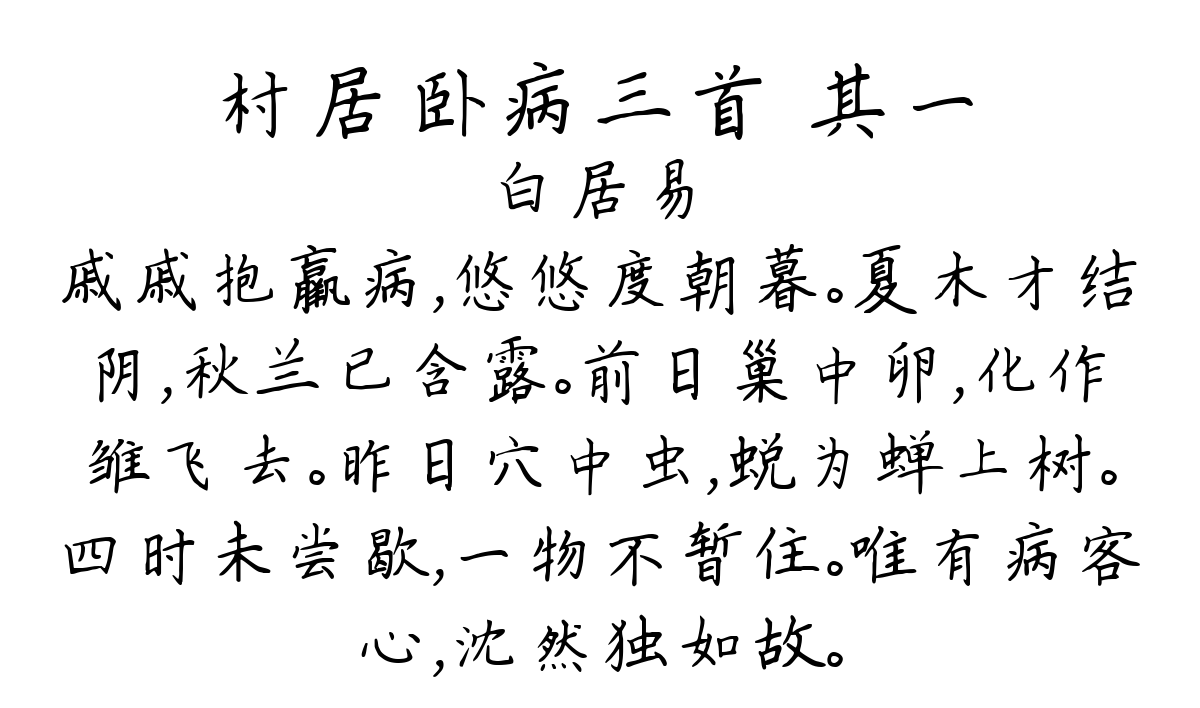 村居卧病三首 其一
白居易
戚戚抱羸病,悠悠度朝暮。夏木才结
阴,秋兰已含露。前日巢中卵,化作
雏飞去。昨日穴中虫,蜕为蝉上树。
四时未尝歇,一物不暂住。唯有病客
心,沈然独如故。